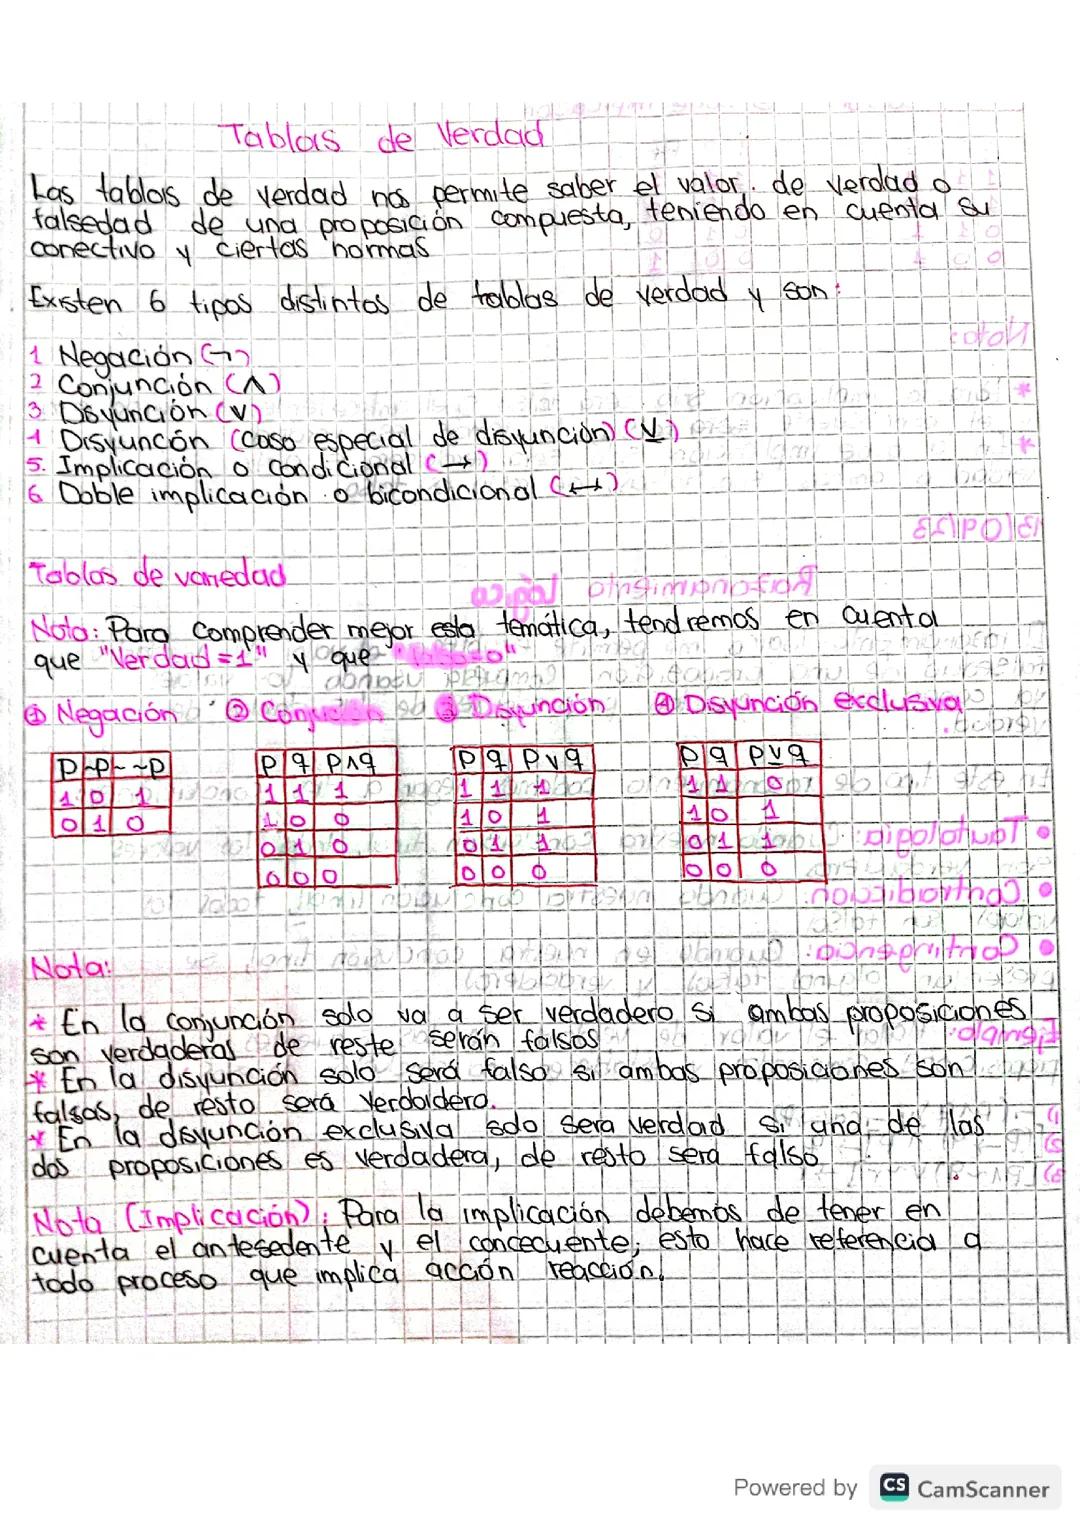 Tablas de Verdad
Las tablas de verdad nos permite saber el valor. de verdad o
falsedad de una proposición compuesta, teniendo en cuenta su
conectivo y ciertas normas
Existen 6 tipos distintos de tablas de verdad y son:
1 Negación (¬)
2 Conjunción (∧)
3 Disyunción (∨)
4 Disyuncón (caso especial de disyunción) (⊻)
5. Implicación o condicional (→)
6 Doble implicación o bicondicional (↔)
Tablas de variedad
Nota: Para comprender mejor esta temática, tendremos en cuenta
que "Verdad=1" y que "Falso=0"
① Negación ② Conjución ③ Disyunción ④ Disyunción exclusiva
p ~p ~~p
1 0 1
0 1 0
p q p∧q
1 1 1
1 0 0
0 1 0
0 0 0
p q p∨q
1 1 1
1 0 1
0 1 1
0 0 0
p q p⊻q
1 1 0
1 0 1
0 1 1
0 0 0
Nota:
* En la conjunción solo va a ser verdadero si ambas proposiciones
son verdaderas de reste serán falsos
* En la disyunción solo será falso si ambas proposiciones son
falsas, de resto será verdaidero.
* En la disyunción exclusiva solo sera verdad si una de las
dos proposiciones es verdadera, de resto sera falso
Nota (Implicación): Para la implicación debemos de tener en
cuenta el antesedente y el concecuente; esto hace referencia a
todo proceso que implica acción reacción.
Powered by CS CamScanner